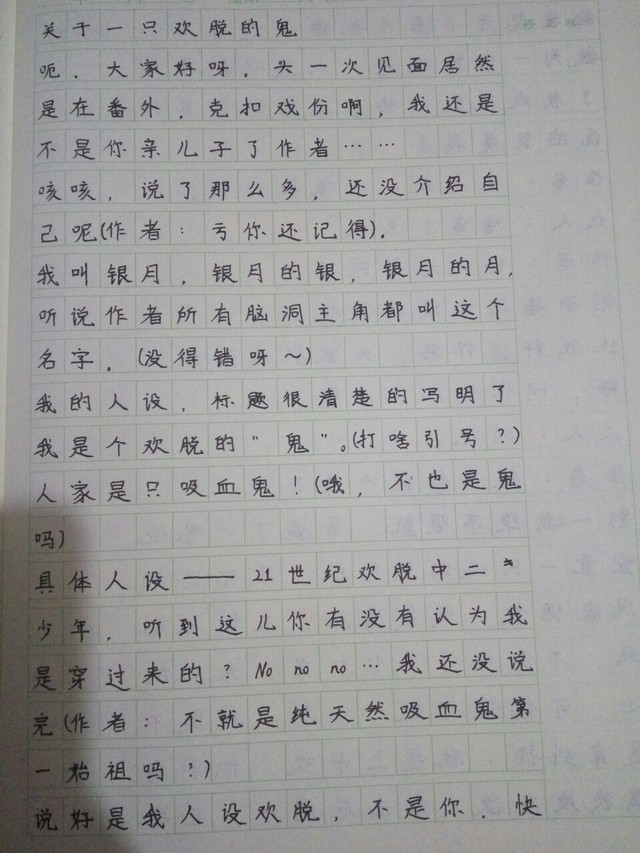 关于一只欢脱的鬼
呃．大家好呀，头一次见面居然
是在番外，克扣戏份啊，我还是
不是你亲儿子了作者……
咳咳，说了那么多，还没介绍自
己呢(作者：亏你还记得)．
我叫银月，银月的银，银月的月，
听说作者所有脑洞主角都叫这个
名字．(没得错呀～)
我的人设，标题很清楚的写明了
我是个欢脱的“鬼”。(打啥引号？)
人家是只吸血鬼！(哦，不也是鬼
吗)
具体人设——21世纪欢脱中二
少年，听到这儿你有没有认为我
是穿过来的？No no no…我还没说
完(作者：不就是纯天然吸血鬼第
一始祖吗？)
说好是我人设欢脱，不是你．快